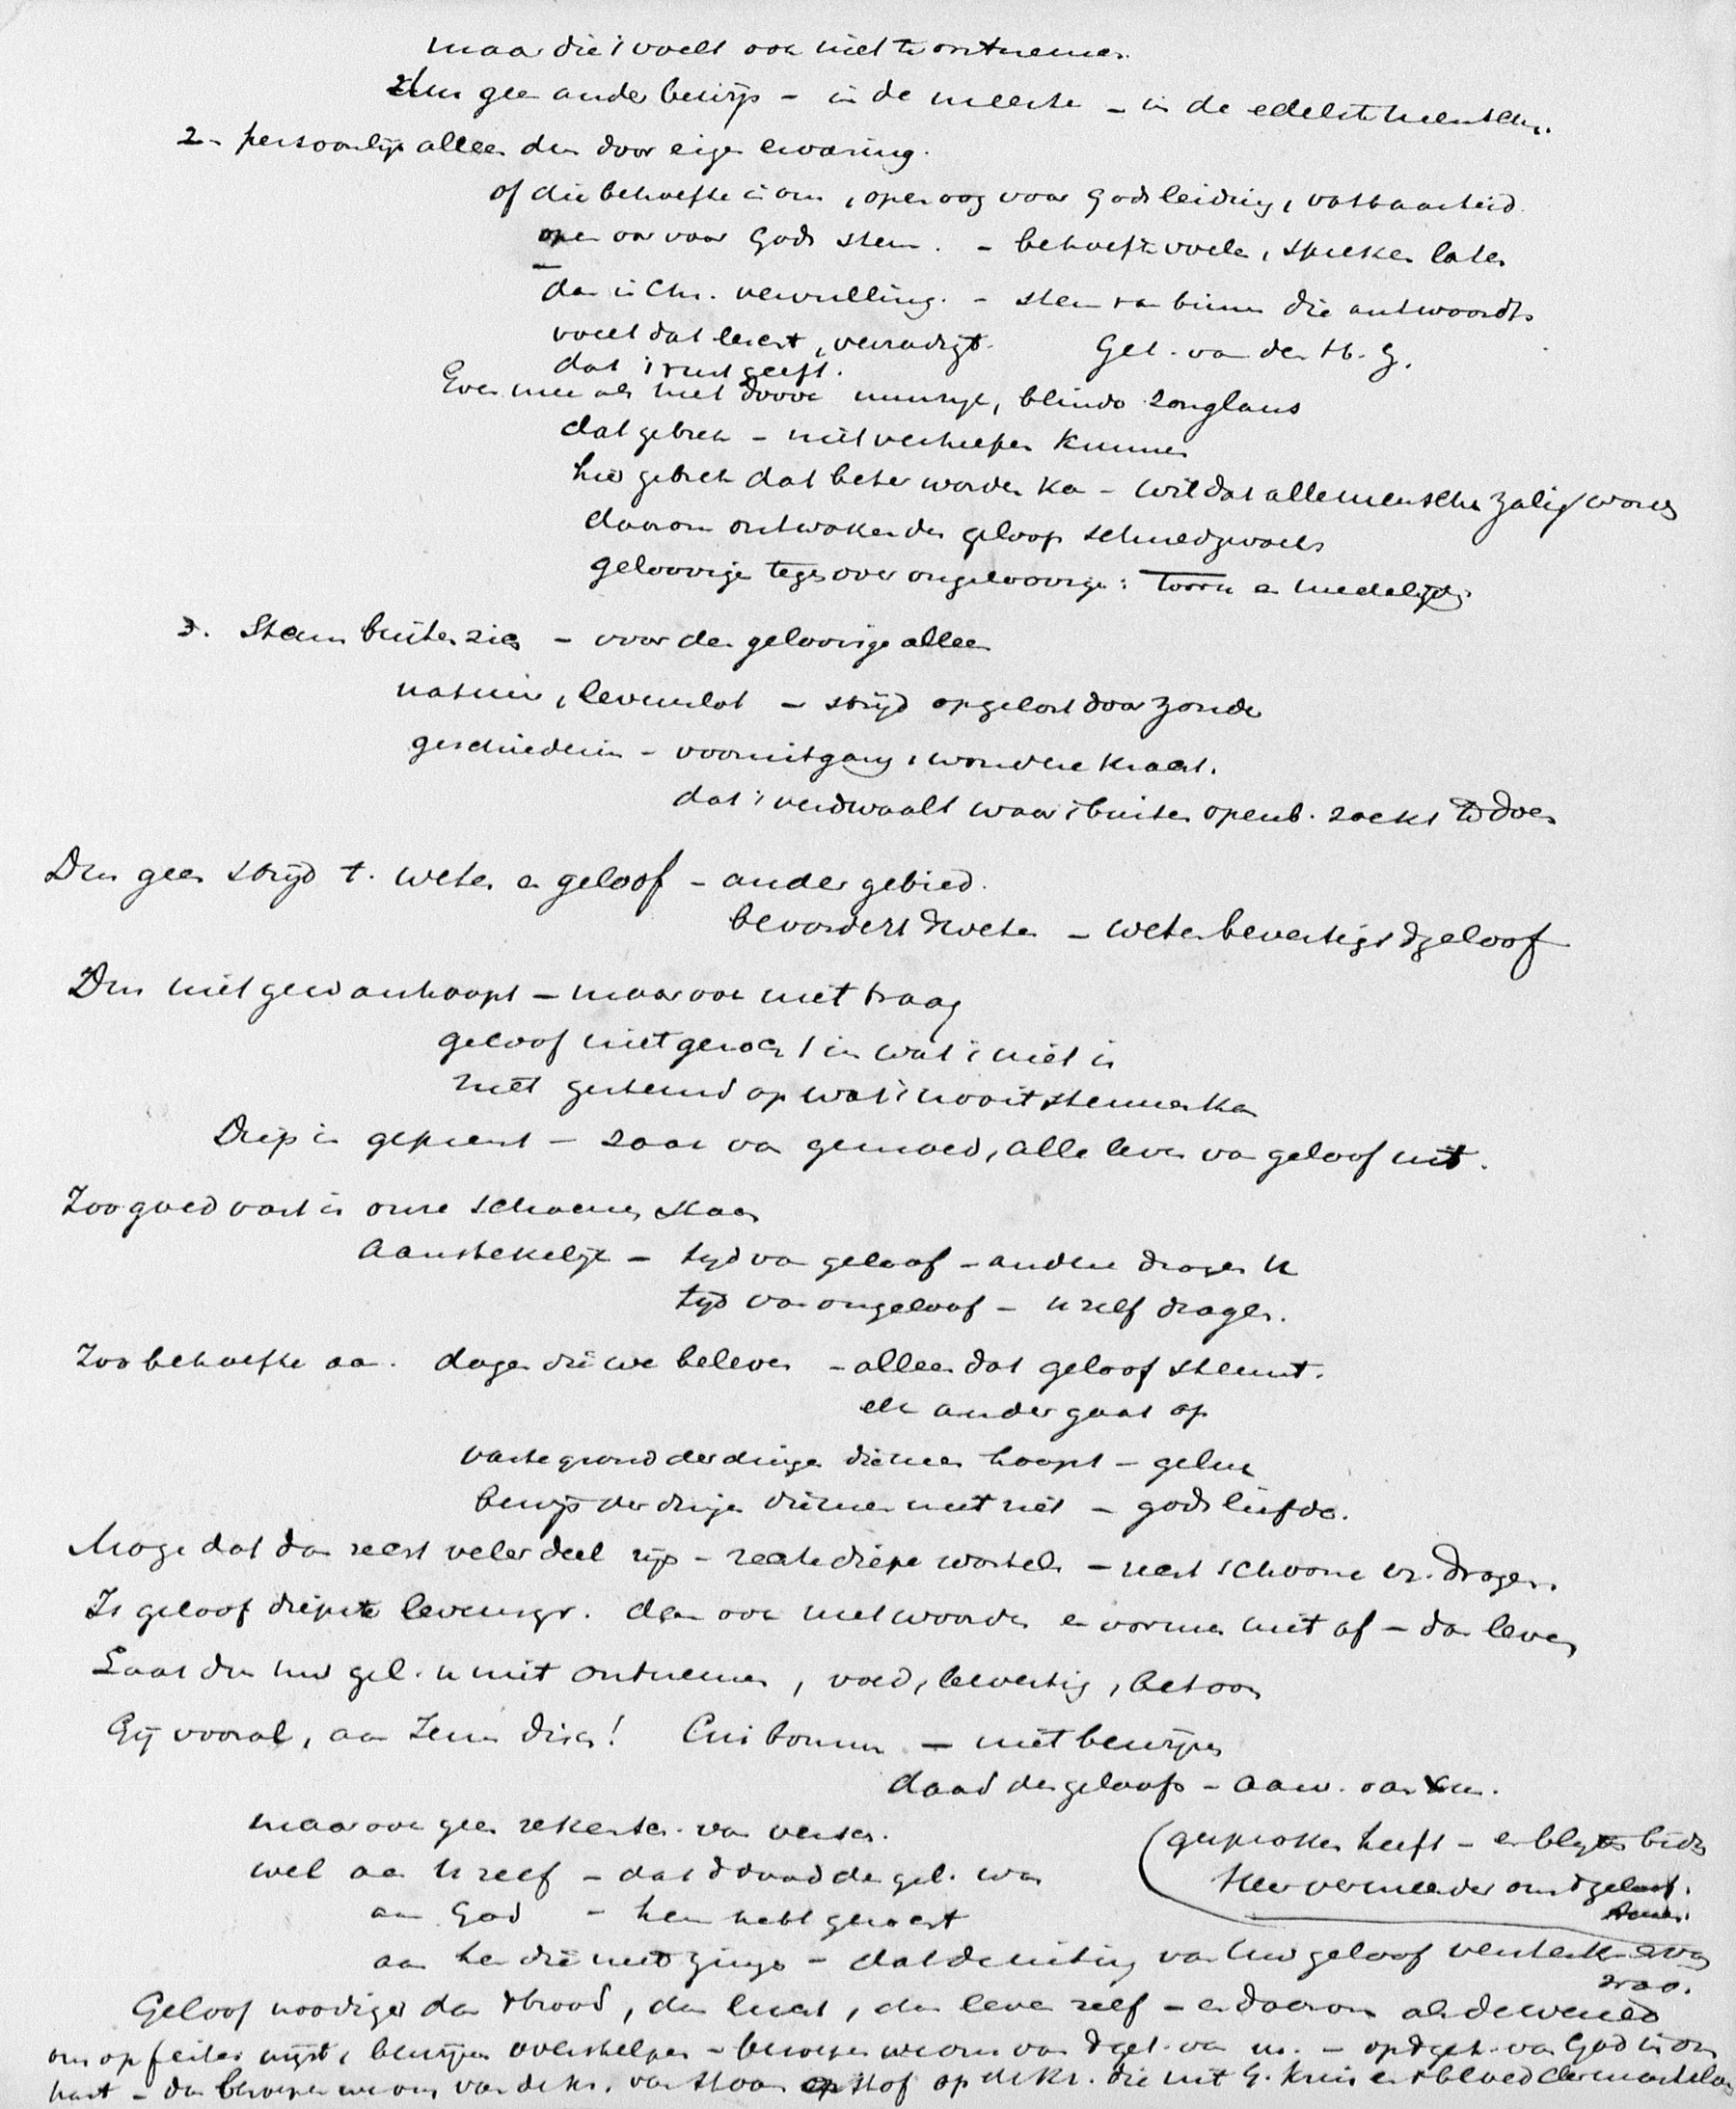 maar die 't voelt ook niet te ontnemen.
geen ander bewijs - in de meeste - in de edelste menschen.
2. persoonlijk alleen dus door eigen ervaring.
of die behoefte in ons, open oog voor Gods leiding, vatbaarheid
open oor voor Gods stem. - behoefte voelen, spreken laten
dan in Chr. vervulling. - stem van binnen die antwoordt
voelt dat leert, verzadigt. Get. van den H. G.
dat rust geeft.
Even min als met doove muzijk, blinde zonglans
dat gebrek - niet verhelpen kunnen
hier gebrek dat beter worden kan - wil dat alle menschen zalig worden
daarom ontwaken des geloofs
geloovige tegenover ongeloovige: toorn en medelijden
3. Stem buiten zich - voor den geloovige alleen
natuur, levenslot - strijd opgelost door zonde
geschiedenis - vooruitgang, wondere kracht.
dat 't verdwaalt waar 't buiten openb. zoekt te doen
Dus geen strijd t. weten en geloof - ander gebied.
bevordert weten - weten bevestigt geloof
Dus niet gewanhoopt - maar ook niet traag
geloof niet gezocht in wat 't niet is
niet gesteund op wat 't nooit steunen kan
Diep in geprent - zaak van gemoed, alle leven van geloof uit.
Zoo goed vast in onze schoenen staan
aanstekelijk - tijd van geloof - andere dragen u
tijd van ongeloof - u zelf dragen.
Zoo behoefte aan. dagen die we beleven - alleen dat geloof steunt.
elk ander gaat op
vaste grond der dingen die men hoopt - geluk
bewijs der dingen die men niet ziet - Gods liefde.
Moge dat dan veler deel zijn - diepe wortels - schoone vr. dragen.
Is geloof diepste levensgr. dan ook met woorden en vormen niet af - dan leven
Laat dus uw gel. u niet ontnemen, voed, bevestig, betoon
Gij vooral, aan Zijn disch! Cui bonum - niet bewijzen
daad des geloofs - aanw. van
maar ook geen zekerheid van
wel aan U zelf - dat daad des gel. was
(gesproken heeft - en blijve bidden
Heer vermeerder ons geloof.
Amen.
aan God - hem hebt gezocht
aan hen die met - dat de uiting van uw geloof versterkt
Geloof noodiger dan brood, dan lucht, dan leven zelf - en daarom als de wereld
ons op feiten wijst, bewijzen - beroepen we ons van - op get. van God in ons
hart - dan beroepen we ons van de kr. van stoom op stof op de kr. die uit G. kruis en bloed der martelaren